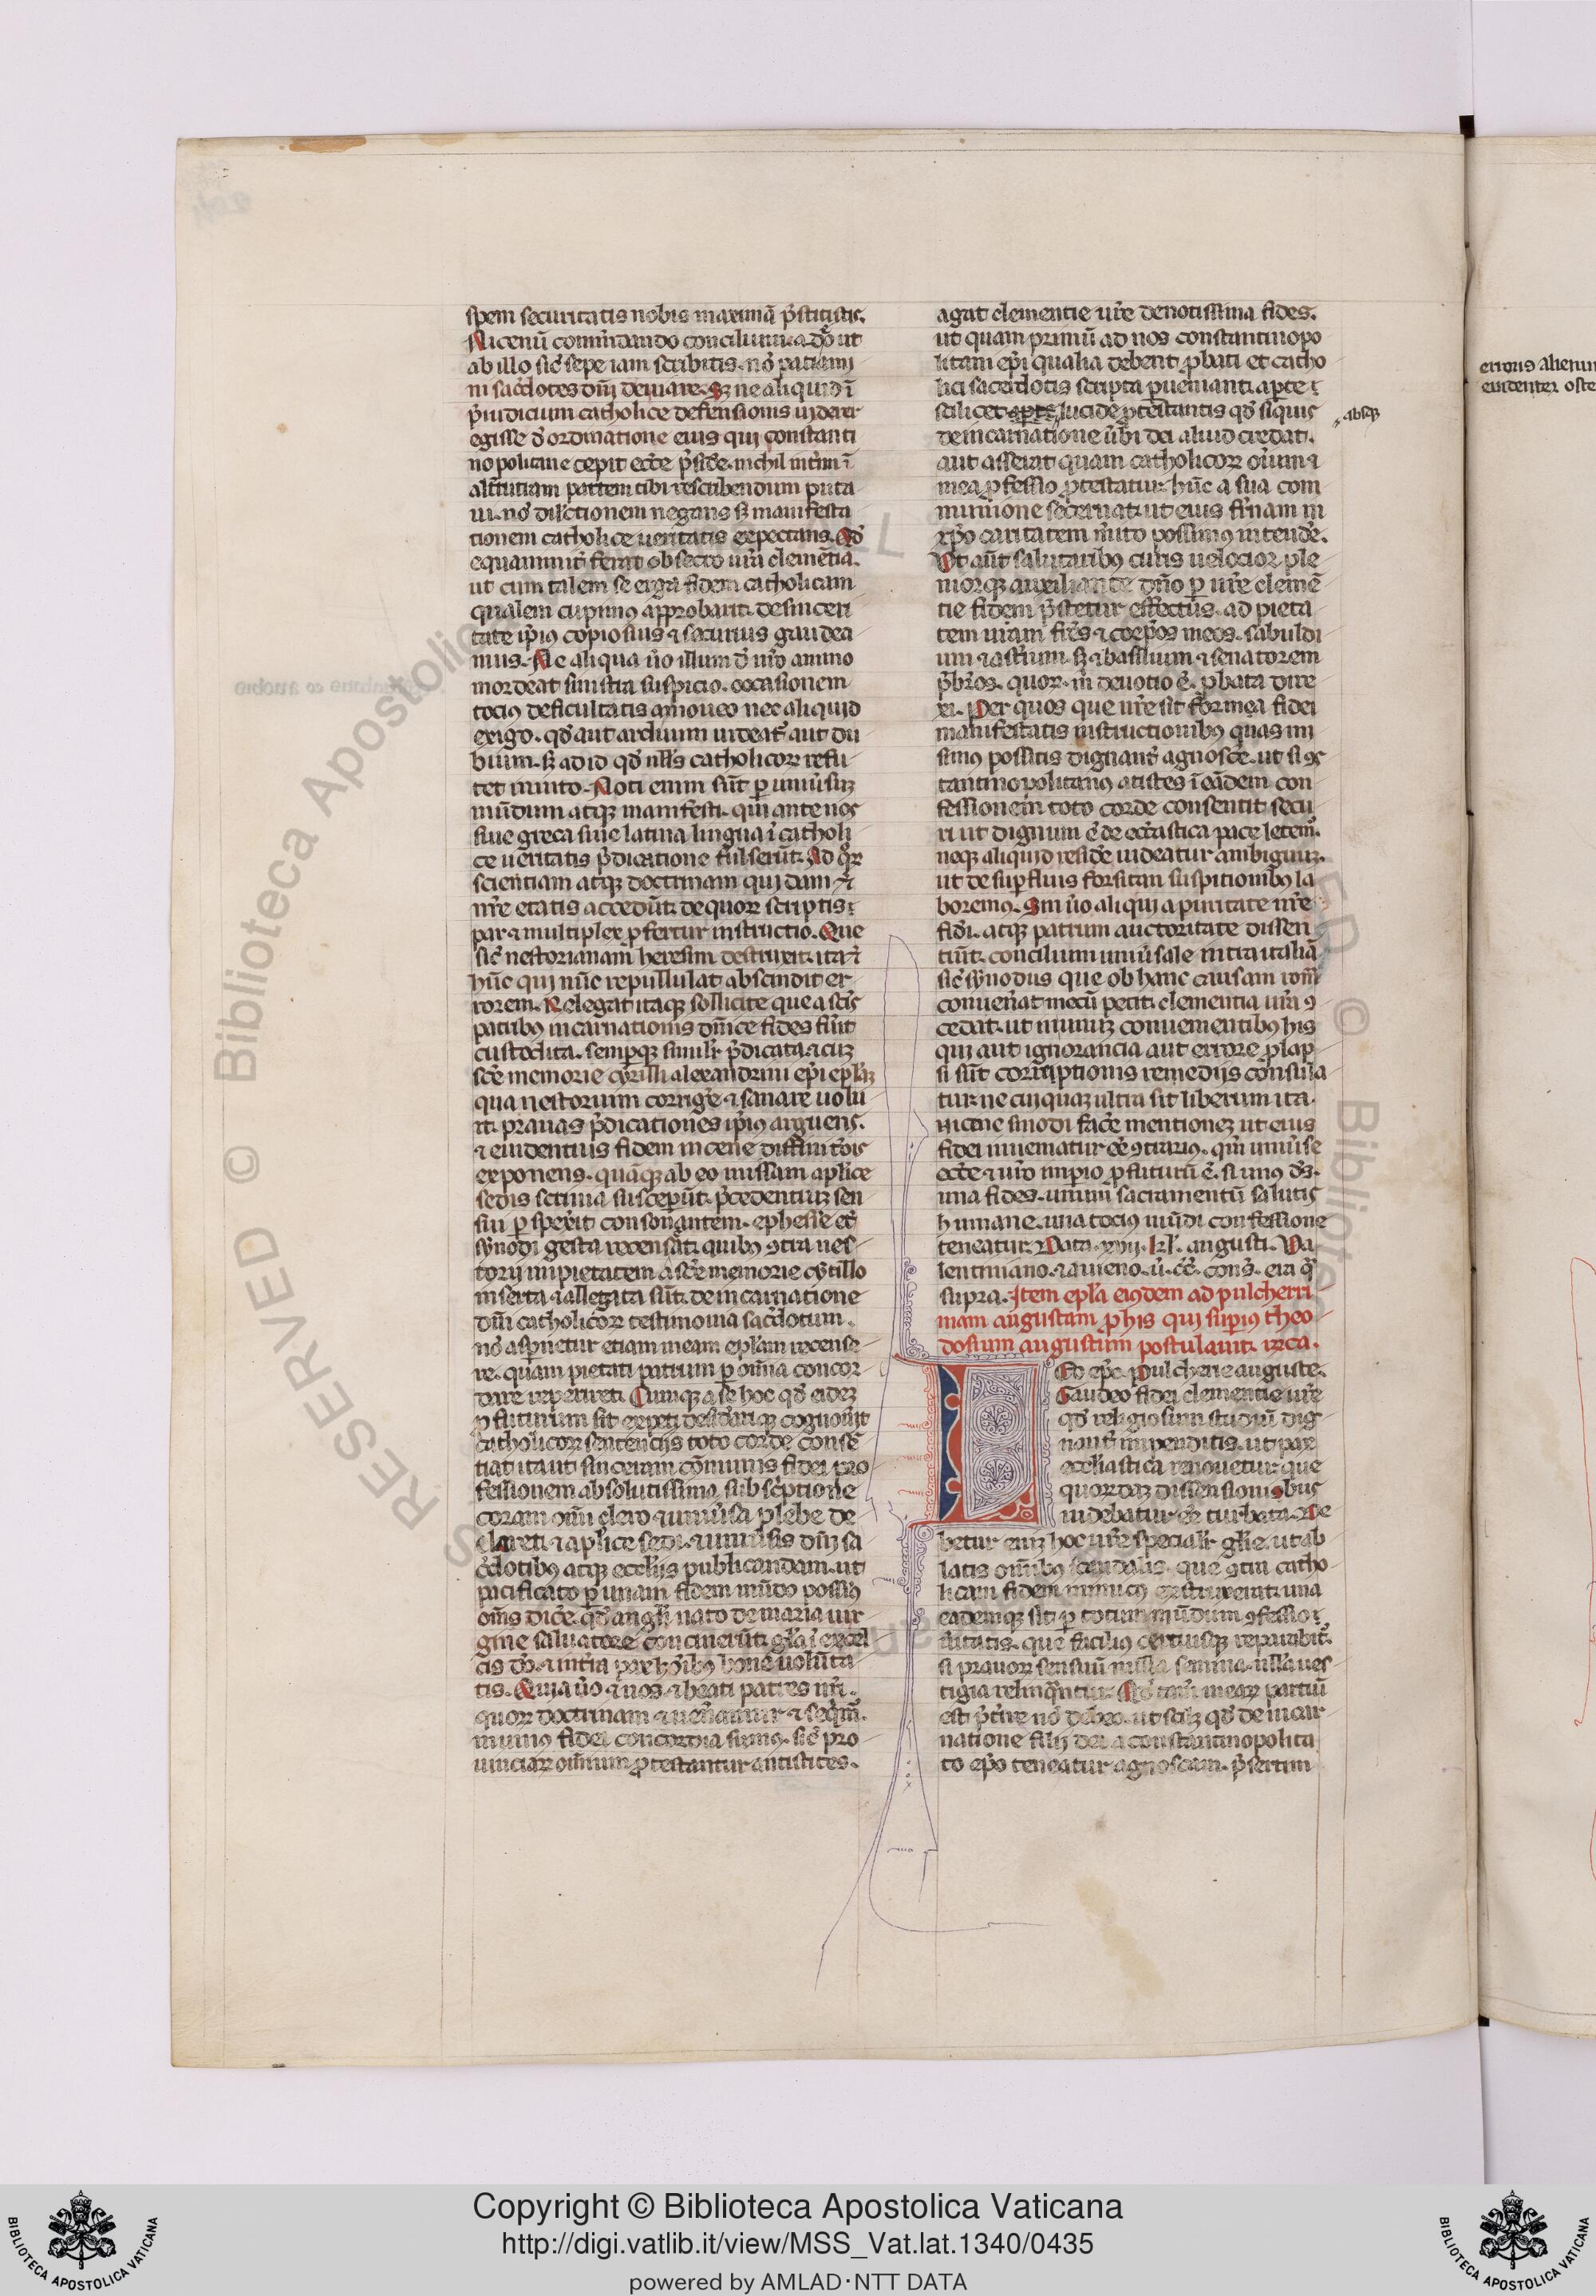 spem securitatis nobis maximā p̄stitistis.
Nicenū com̄dando concilium. a qͦ ut
ab illo sic̄ sepe iam scribitis. nō patiamī
ni sac̄dotes dn̄i deuiare. Sꝫ ne aliquid ī
p̄iudicium catholice defensionis uiderer
egisse d̄ ordinatione eius qui constanti
nopolitane cepit ecc̄e p̄sid̄e. nichil int̄im ī
alt̄utram partem tibi rescribendum puta
ui. nō dil̄ctionem negans sꝫ manifesta
tionem catholice ueritatis expectans. Qd̄
equanimit̄ ferat obsecro ur̄a clemētia.
ut cum talem se erga fidem catholicam
qualem cupimꝰ approbarit. de sinceri
tate ip̄iꝰ copiosius ⁊ securius gaudea
mus. Ne aliqua ūo illum d̄ nr̄o animo
mordeat sinistra suspicio. occasionem
tociꝰ deficultatis amoueo nec aliquid
exigo. qd̄ aut arduum uideat̄ aut du
bium. sꝫ ad id qd̄ nll̄s catholicoꝝ refu
tet inuito. Noti enim sūt ꝑ uniūsuꝫ
mūdum atqꝫ manifesti. qui ante nos
siue greca siue latina lingua ī catholi
ce ueritatis p̄dicatione fulserūt. Ad qͦꝝ
scientiam atqꝫ doctrinam quidam ⁊̄
nr̄e etatis accedūt. de quoꝝ scriptis:
par ⁊ multiplex ꝓfertur instructio. Que
sic̄ nestorianam heresim destruxit. ita ⁊̄
hūc qui nūc repullulat abscindit er
rorem. Relegat itaqꝫ sollicite que a sc̄is
patribꝰ incarnationis dn̄ice fides fūit
custodita. semperqꝫ simil̄r p̄dicata. ⁊ cuꝫ
sc̄e memorie cyrilli alexandrini ep̄i epl̄aꝫ
qua nestorium corrige ⁊ sanare uolu
it. prauas p̄dicationes ip̄iꝰ arguens.
⁊ euidentius fidem nicene diffinit̄ōis
exponens. quāqꝫ ab eo missam apl̄ice
sedis scrinia susceperūt. p̄cedentiuꝫ sen
siū ꝑspexit consonantem. ephesīe et̄
synodi gesta recenseāt. quibꝰ ↄtra nes
torij impietatem a sc̄e memorie cyrillo
inserta ⁊ allegata sūt. de incarnatione
dn̄i catholicoꝝ testimonia sac̄dotum.
nō asp̄netur etiam meam epl̄am recense
re. quam pietati patrum ꝑ om̄ia concor
dare repperiet. Cumqꝫ a se hoc qd̄ eidez
ꝓfuturum sit expeti desid̄ariqꝫ cognouit
catholicoꝝ sentencijs toto corde consē
tiat ita ut sinceram cōmunis fidei pro
fessionem absolutissima subsc̄ptione
coram om̄i clero ⁊ uniūsa plebe de
claret. ⁊ apl̄ice sedi. ⁊ uniūsis dn̄i sa
c̄dotibꝰ atqꝫ eccl̄ijs publicandam. ut
pacificato ꝑ unam fidem mūdo possimꝰ
om̄s dic̄e. qd̄ angl̄i nato de maria uir
gine saluatore concinerūt. gl̄a ī excel
cis dō. ⁊ in t̄ra pax hoīibꝰ bone uolūta
tis. Quia ūo ⁊ nos. ⁊ beati patres nr̄i.
quoꝝ doctrinam ⁊ uen̄amur ⁊ seq̄m̄.
in uniꝰ fidei concordia sumꝰ. sic̄ pro
uinciaꝝ om̄ium ꝓtestantur antistites.
agat clementie ur̄e deuotissima fides.
ut quam primū ad nos constantinopo
litani ep̄i qualia debent ꝓbati et catho
lici sacerdotis scripta ꝑueniant. apte:
scilicet apte lucide ꝓtestantis qd̄ siquis
absqꝫ
de incarnatione ūbi dei aliud credat.
aut asserat quam catholicoꝝ om̄ium ⁊
mea ꝓfessio ꝓtestatur. hūc a sua com
munione secernat. ut eius fr̄nam in
xp̄o caritatem m̄ito possimꝰ intend̄e.
Ut aūt salutaribꝰ curis uelocior ple
niorqꝫ auxiliante dn̄o ꝑ ur̄e clemē
tie fidem p̄stetur effectus. ad pieta
tem ur̄am fr̄es ⁊ coep̄os meos. sabuldi
um ⁊ ast̄ium. sꝫ ⁊ basilium ⁊ senatorem
p̄br̄os. quoꝝ m̄ deuotio ē. ꝓbata dire
xi. Per quos que ur̄e sit forma fidei
manifestatis instructionibꝰ quas mi
simꝰ possitis dignant̄ agnosc̄e. ut si ↄs
tantinopolitanꝰ atistes ī eādem con
fessionem toto corde consentit secu
ri ut dignum ē de eccl̄astica pace letem̄.
neqꝫ aliquid resid̄e uideatur ambiguuꝫ.
ut de suꝑfluis forsitan suspitionibꝰ la
boremꝰ. Sin ūo aliqui a puritate nr̄e
fid̄i. atqꝫ patrum auctoritate dissen
tiūt. concilium uniūsale intra italiā
sic̄ synodus que ob hanc causam rom̄
conuen̄at mecū petiit. clementia ur̄a ↄ
cedat. ut in unuꝫ conuenientibꝰ his
qui aut ignorancia aut errore ꝓlap
si sūt corruptionis remedijs consula
tur. ne cuiquaꝫ ultra sit liberum ita
nicene sinodi fac̄e mentionez ut eius
fidei inueniatur ec̄e ↄtrariꝰ. qm̄ uniūse
ecc̄e ⁊ ur̄o imperio ꝓfuturū ē. si unꝰ ds̄.
una fides. unum sacramentū salutis
humane. una tociꝰ mūdi confessione
teneatur. Data. xviij. kl̄. augusti. Va
lentiniano. ⁊ auieno. ū. cc̄. cons̄. era q̄
supra. Item epl̄a eiꝰdem ad pulcherri
mam augustam ꝓ his qui suꝑius theo
dosium augustum postulauit. xxca.
Leo ep̄c. Pulcherie auguste.
Gaudeo fidei clementie ur̄e
qd̄ religiosum studiū dig
nant̄ impenditis. ut pax
eccl̄iastica renouetur que
quorūdaꝫ dissensionibus
uidebatur ec̄e turbata. De
betur eniꝫ hoc ur̄e special̄r gl̄ie. ut ab
latis om̄ibꝰ scandalis. que ↄtra catho
licam fidem inimicꝰ exstruxerit. una
eademqꝫ sit ꝑ totum mūdum ↄfessio:
ūitatis. que faciliꝰ certiusqꝫ reparabit̄.
si prauoꝝ sensuū nulla semina. nulla ues
tigia relinq̄ntur. Qd̄ tam̄ meaꝝ partiū
est p̄t̄ire nō debeo. ut scilꝫ qd̄ de incar
natione filij dei a constantinopolita
to ep̄o teneatur agnoscam. p̄sertim
erroris alienum
euidenter oste
Copyright © Biblioteca Apostolica Vaticana
http://digi.vatlib.it/view/MSS_Vat.lat.1340/0435
powered by AMLAD·NTT DATA
BIBLIOTECA APOSTOLICA VATICANA
BIBLIOTECA APOSTOLICA VATICANA